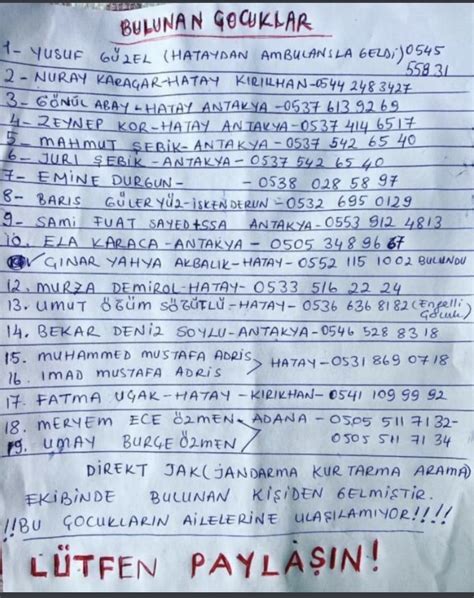 BULUNAN ÇOCUKLAR
1- YUSUF GÜZEL (HATAYDAN AMBULANSLA GELDİ) 0545
558 31
2- NURAY KARAÇAR-HATAY KIRIKHAN-0544 248 3427
3- GÖNÜL ABAY-HATAY ANTAKYA-0537 613 92 69
4- ZEYNEP KOR-HATAY ANTAKYA-0537 414 6517
5- MAHMUT ŞEBİK-ANTAKYA-0537 542 65 40
6- JURİ ŞEBİK-ANTAKYA-0537 542 65 40
7- EMİNE DURGUN- -0538 028 58 97
8- BARIŞ GÜLERYÜZ-İSKENDERUN-0532 695 0129
9- SAMİ FUAT SAYED ANTAKYA-0553 912 4813
10. ELA KARACA-ANTAKYA-0505 348 96 67
ÇINAR YAHYA AKBALIK-HATAY-0552 115 1002 BULUNDU
12. MURZA DEMİROL-HATAY-0533 516 22 24
13. UMUT ÖĞÜM SÖĞÜTLÜ-HATAY-0536 636 8182 (Engelli
Çocuk)
14. BEKAR DENİZ SOYLU-ANTAKYA-0546 528 83 18
15. MUHAMMED MUSTAFA ADRİS
HATAY-0531 869 07 18
16. İMAD MUSTAFA ADRİS
17. FATMA UÇAK-HATAY-KIRIKHAN-0541 109 99 92
18. MERYEM ECE ÖZMEN-ADANA-0505 511 71 32-
19. UMAY BURÇE ÖZMEN 0505 511 71 34
DİREKT JAK (JANDARMA KURTARMA ARAMA)
EKİBİNDE BULUNAN KİŞİDEN GELMİŞTİR.
!!BU ÇOCUKLARIN AİLELERİNE ULAŞILAMIYOR!!!!
LÜTFEN PAYLAŞIN!